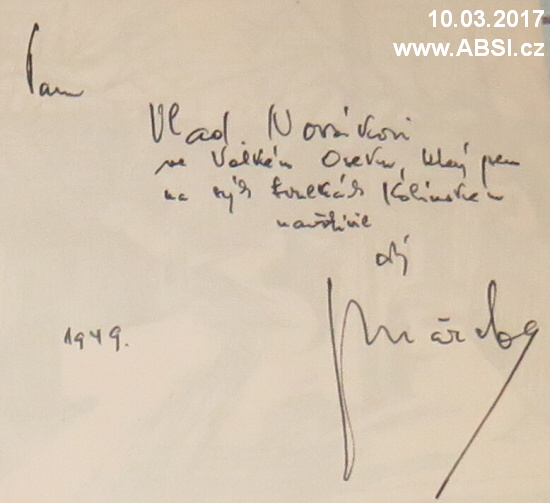 10.03.2017
www.ABSI.cz
Panu
Vlad. Novákovi
ve Velkém Oseku, který jsem
na svých toulkách Kolínskem
navštívil
1949.